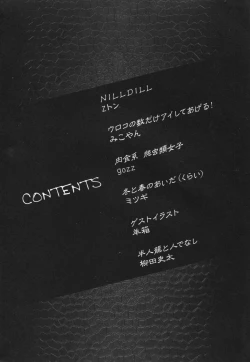 NILLDILL
Zトン
ウロコの数だけアイしてあげる!
みこやん
肉食系 爬虫類女子
gozz
CONTENTS
冬と春のあいだ(くらい)
ミツギ
ゲストイラスト
半人龍と人でなし